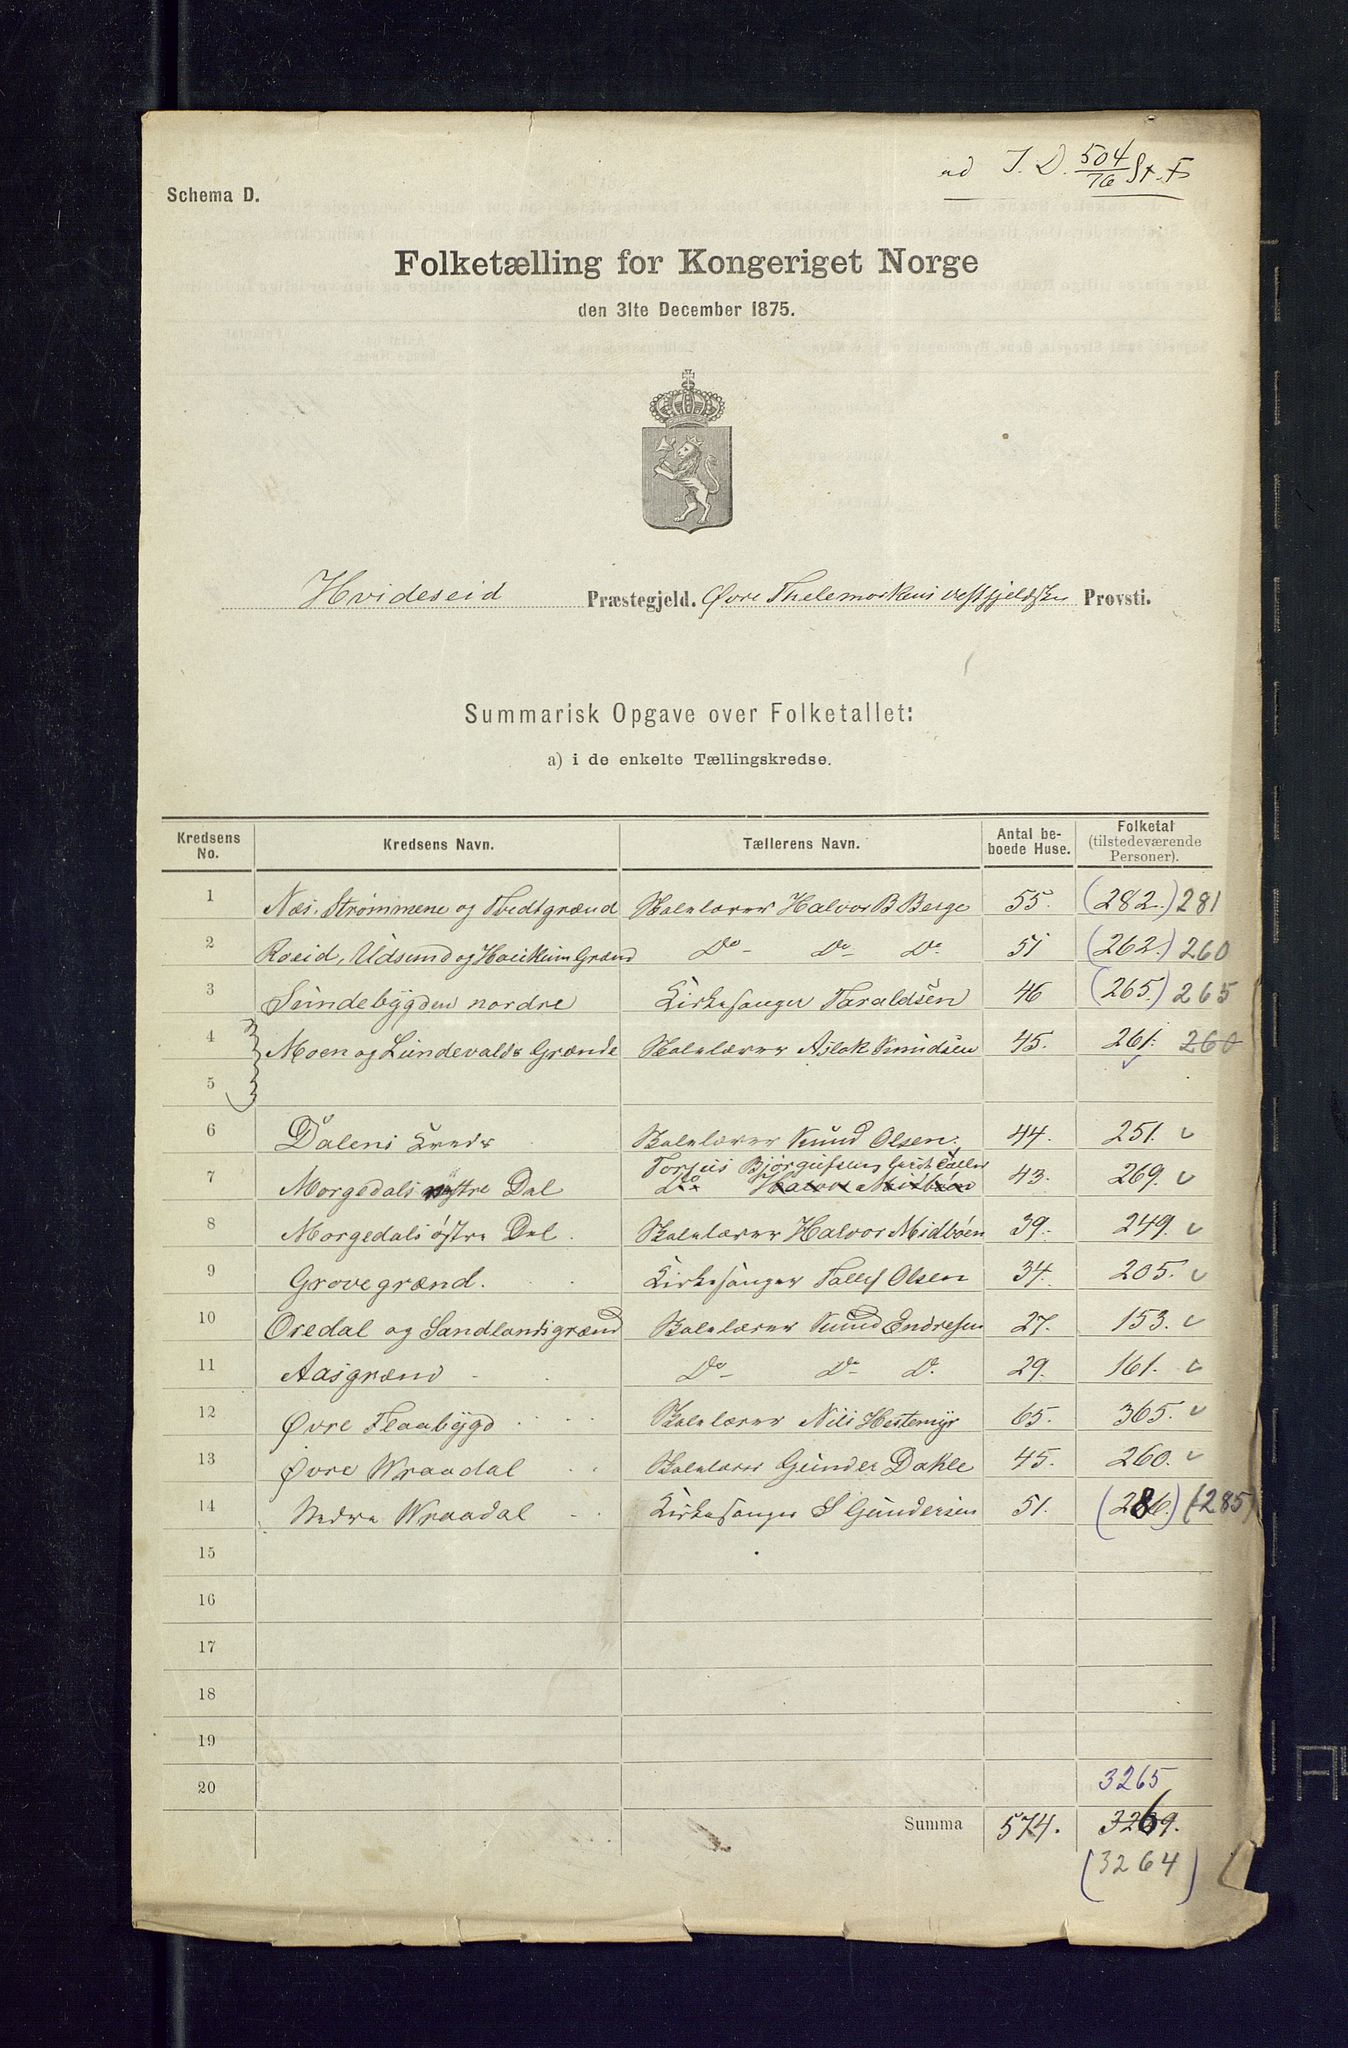 ad J. D. 504/76 St. F
Schema D.
Folketælling for Kongeriget Norge
den 31te December 1875.
Hvideseid Præstegjeld. Øvre Thelemarkens vestfjeldske Provsti.
Summarisk Opgave over Folketallet:
a) i de enkelte Tællingskredse.
Kredsens No. Kredsens Navn. Tællerens Navn. Antal beboede Huse. Folketal (tilstedeværende Personer).
1 Næs, Strømmene og Tvedtgrænd Skolelærer Halvor B Berge 55. (282.) 281
2 Roeid, Udsund og Hvikum Grænd Do Do Do 51 (262.) 260
3 Sundebygden nordre Kirkesanger Taraldsen 46 (265.) 265
4 Moen og Lundevalds Grænde Skolelærer Aslak Knudsen 45. 261. 260
5
6 Dalens Kreds Skolelærer Knud Olsen. 44. 251.
7 Morgedals vestre Dal Torjus Bjørgufsen 43. 269.
Do Halvor Midbøen
8 Morgedals østre Dal. Skolelærer Halvor Midbøen 39. 249.
9 Grovegrænd. Kirkesanger Tallef Olsen 34. 205.
10 Oredal og Sandlandsgrænd Skolelærer Knud Endresen 27. 153.
11 Aasgrænd Do Do D. 29. 161.
12 Øvre Flaabygd Skolelærer Nils Hestemyr 65. 365.
13 Øvre Vraadal Skolelærer Gunder Dahle 45. 260.
14 Nedre Vraadal Kirkesanger S Gundersen 51. (286.) (285)
15
16
17
18
19
20 3265
Summa 574. 3269.
(3264)